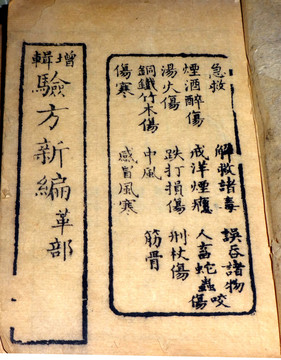 急救 解救諸毒 誤吞諸物
煙酒醉傷 戒洋煙癮 人畜蛇蟲咬傷
湯火傷 跌打損傷 刑杖傷
銅鐵竹木傷 中風 筋骨
傷寒 感冒風寒
增輯
驗方新編 革部